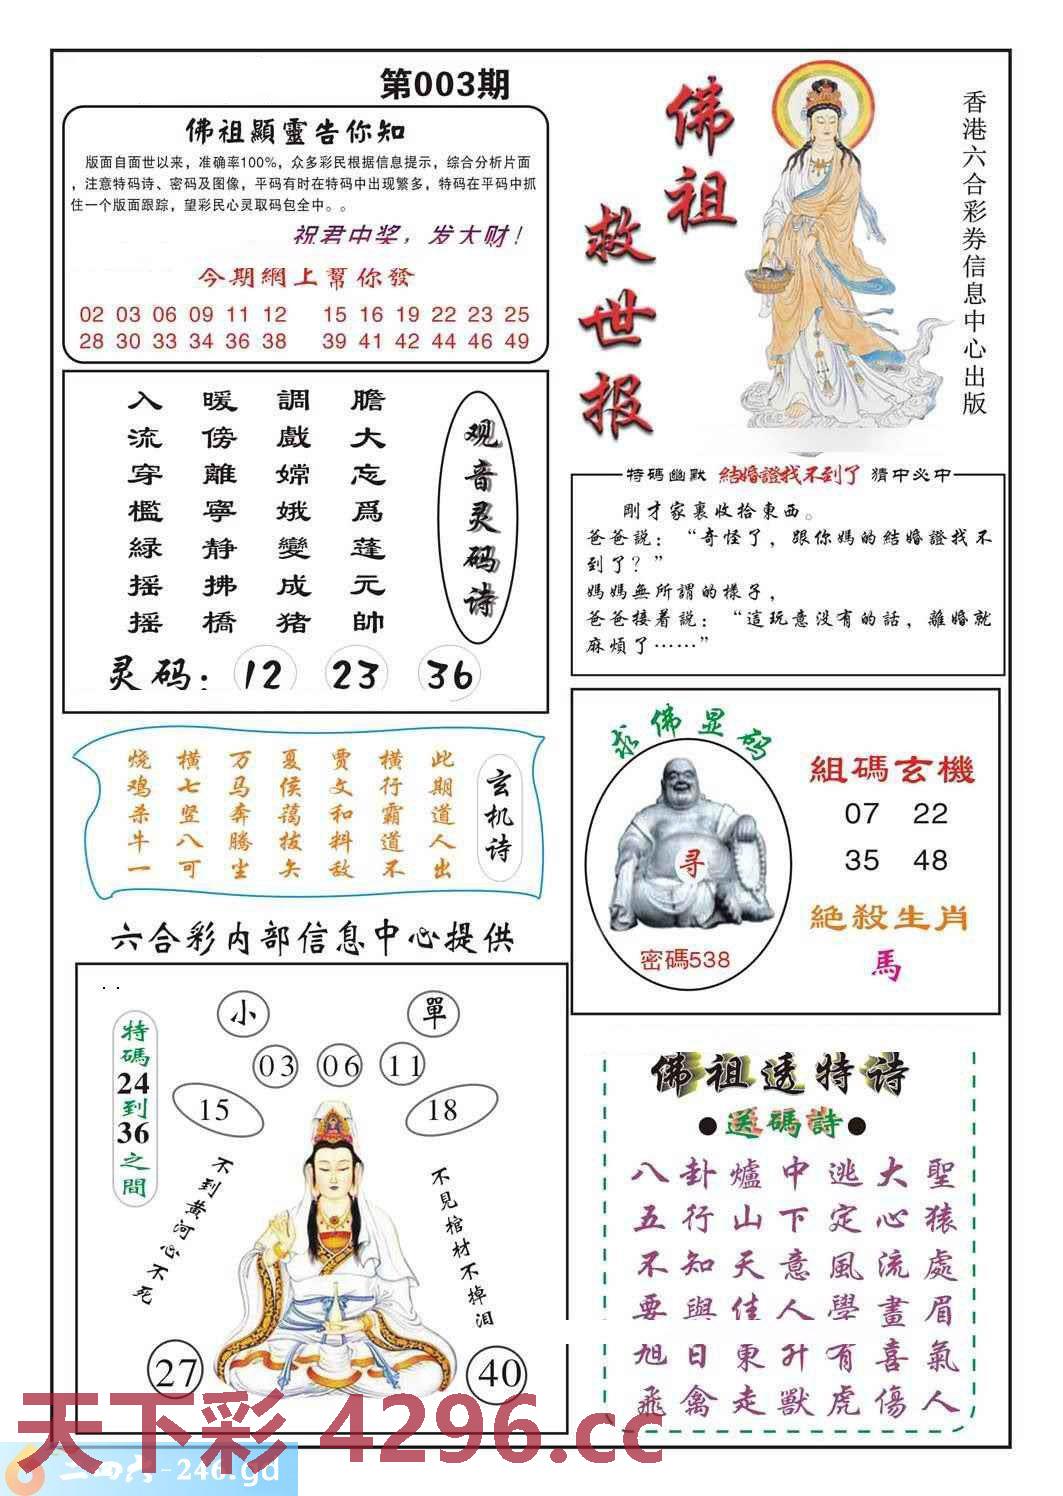 第003期
佛祖顯靈告你知
版面自面世以来，准确率100%，众多彩民根据信息提示，综合分析片面
，注意特码诗、密码及图像，平码有时在特码中出现繁多，特码在平码中抓
住一个版面跟踪，望彩民心灵取码包全中。。
祝君中奖，发大财！
今期網上幫你發
02 03 06 09 11 12 15 16 19 22 23 25
28 30 33 34 36 38 39 41 42 44 46 49
佛祖
救世报
香港六合彩券信息中心出版
膽大忘爲蓬元帥
調戲嫦娥變成猪
暖傍離寧静拂橋
入流穿檻緑摇摇
观音灵码诗
灵码：12 23 36
特碼幽默 結婚證找不到了 猜中必中
剛才家裏收拾東西。
爸爸説：“奇怪了，跟你媽的結婚證找不
到了？”
媽媽無所謂的樣子，
爸爸接着説：“這玩意没有的話，離婚就
麻煩了……”
玄机诗
此期道人出
横行霸道不
贾文和料敌
夏侯蔼拔矢
万马奔腾生
横七竖八可
烧鸡杀牛一
求佛显码
寻
密碼538
組碼玄機
07 22
35 48
絶殺生肖
馬
六合彩内部信息中心提供
小 單
03 06 11
15 18
特碼24到36之間
不到黄河心不死
不見棺材不掉泪
27 40
佛祖透特诗
●送碼詩●
八卦爐中逃大聖
五行山下定心猿
不知天意風流處
要與佳人學畫眉
旭日東升有喜氣
飛禽走獸虎傷人
天下彩 4296.cc
二四六-246.gd